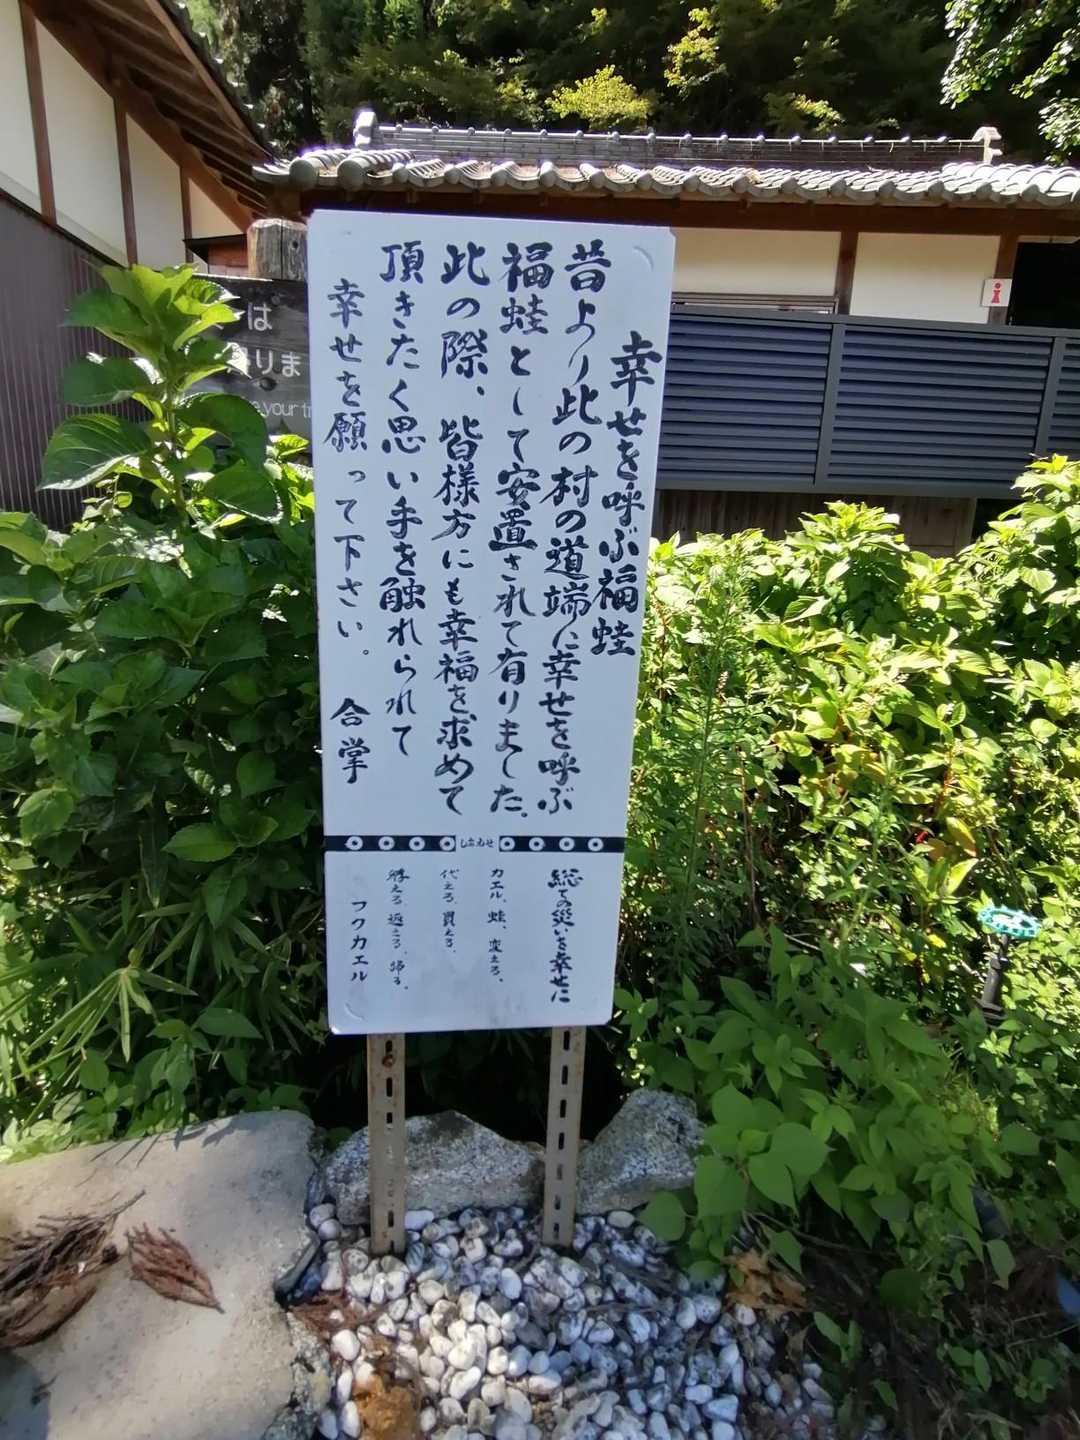 幸せを呼ぶ福蛙
昔より此の村の道端に幸せを呼ぶ
福蛙として安置されて有りました。
此の際、皆様方にも幸福を求めて
頂きたく思い手を触れられて
幸せを願って下さい。 合掌
しあわせ
総ての災いを幸せに
カエル、蛙、変える、
代える、買える、
返える、帰る。
フクカエル
は
りま
your tr
i